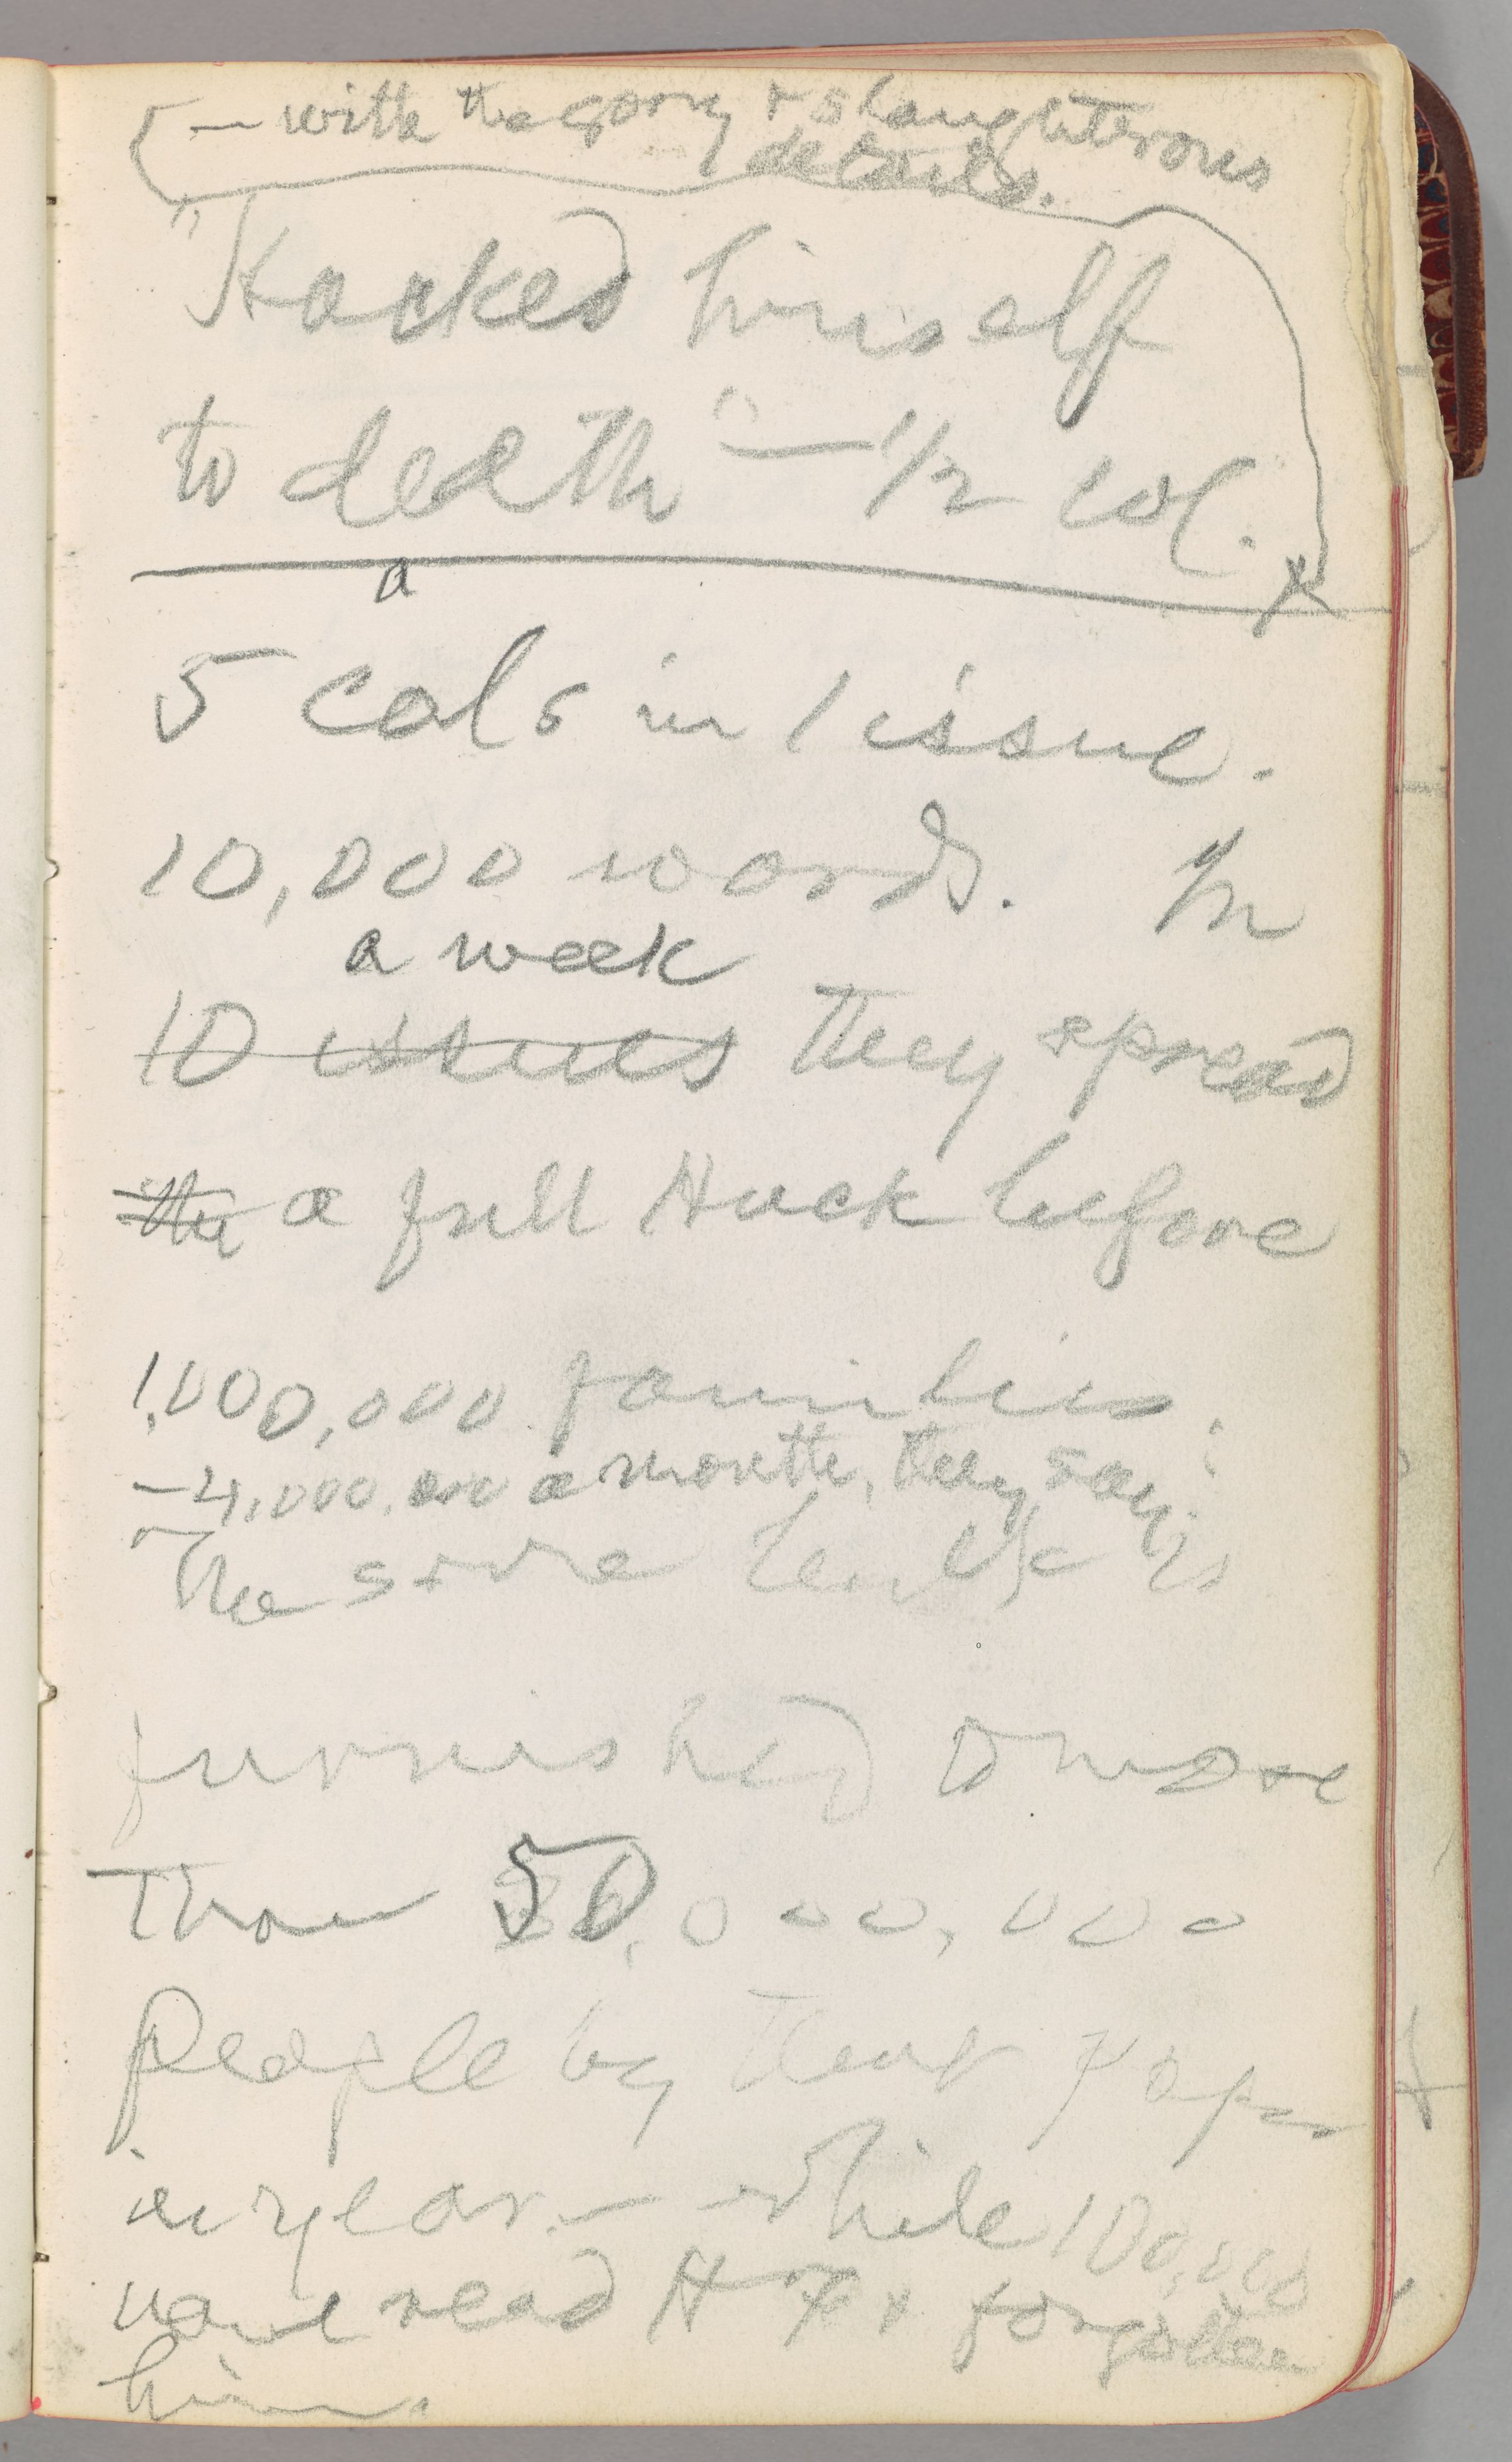 — with the gory & slaughterous
details.
"Hacked himself
to death" — 1/2 col.
a
5 cols in 1 issue.
10,000 words. In
a week
10 issues they spread
the a full Huck before
1,000,000 families.
— 4,000,000 a month, they say.
The same bulk is
furnished to more
than 50,000,000
people by their paper
in year. — While 100,000
have read H F & forgotten
him.